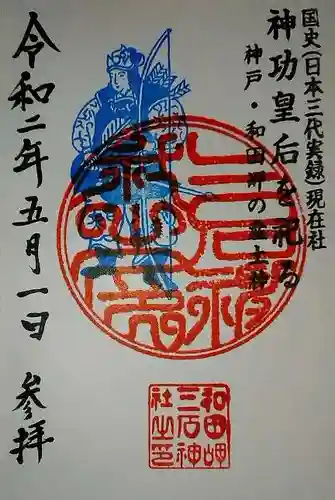 国史(日本三代実録)現在社
神功皇后を祀る
神戸・和田岬の産土神
令和二年五月一日 参拝
和田岬
三石神
社之印